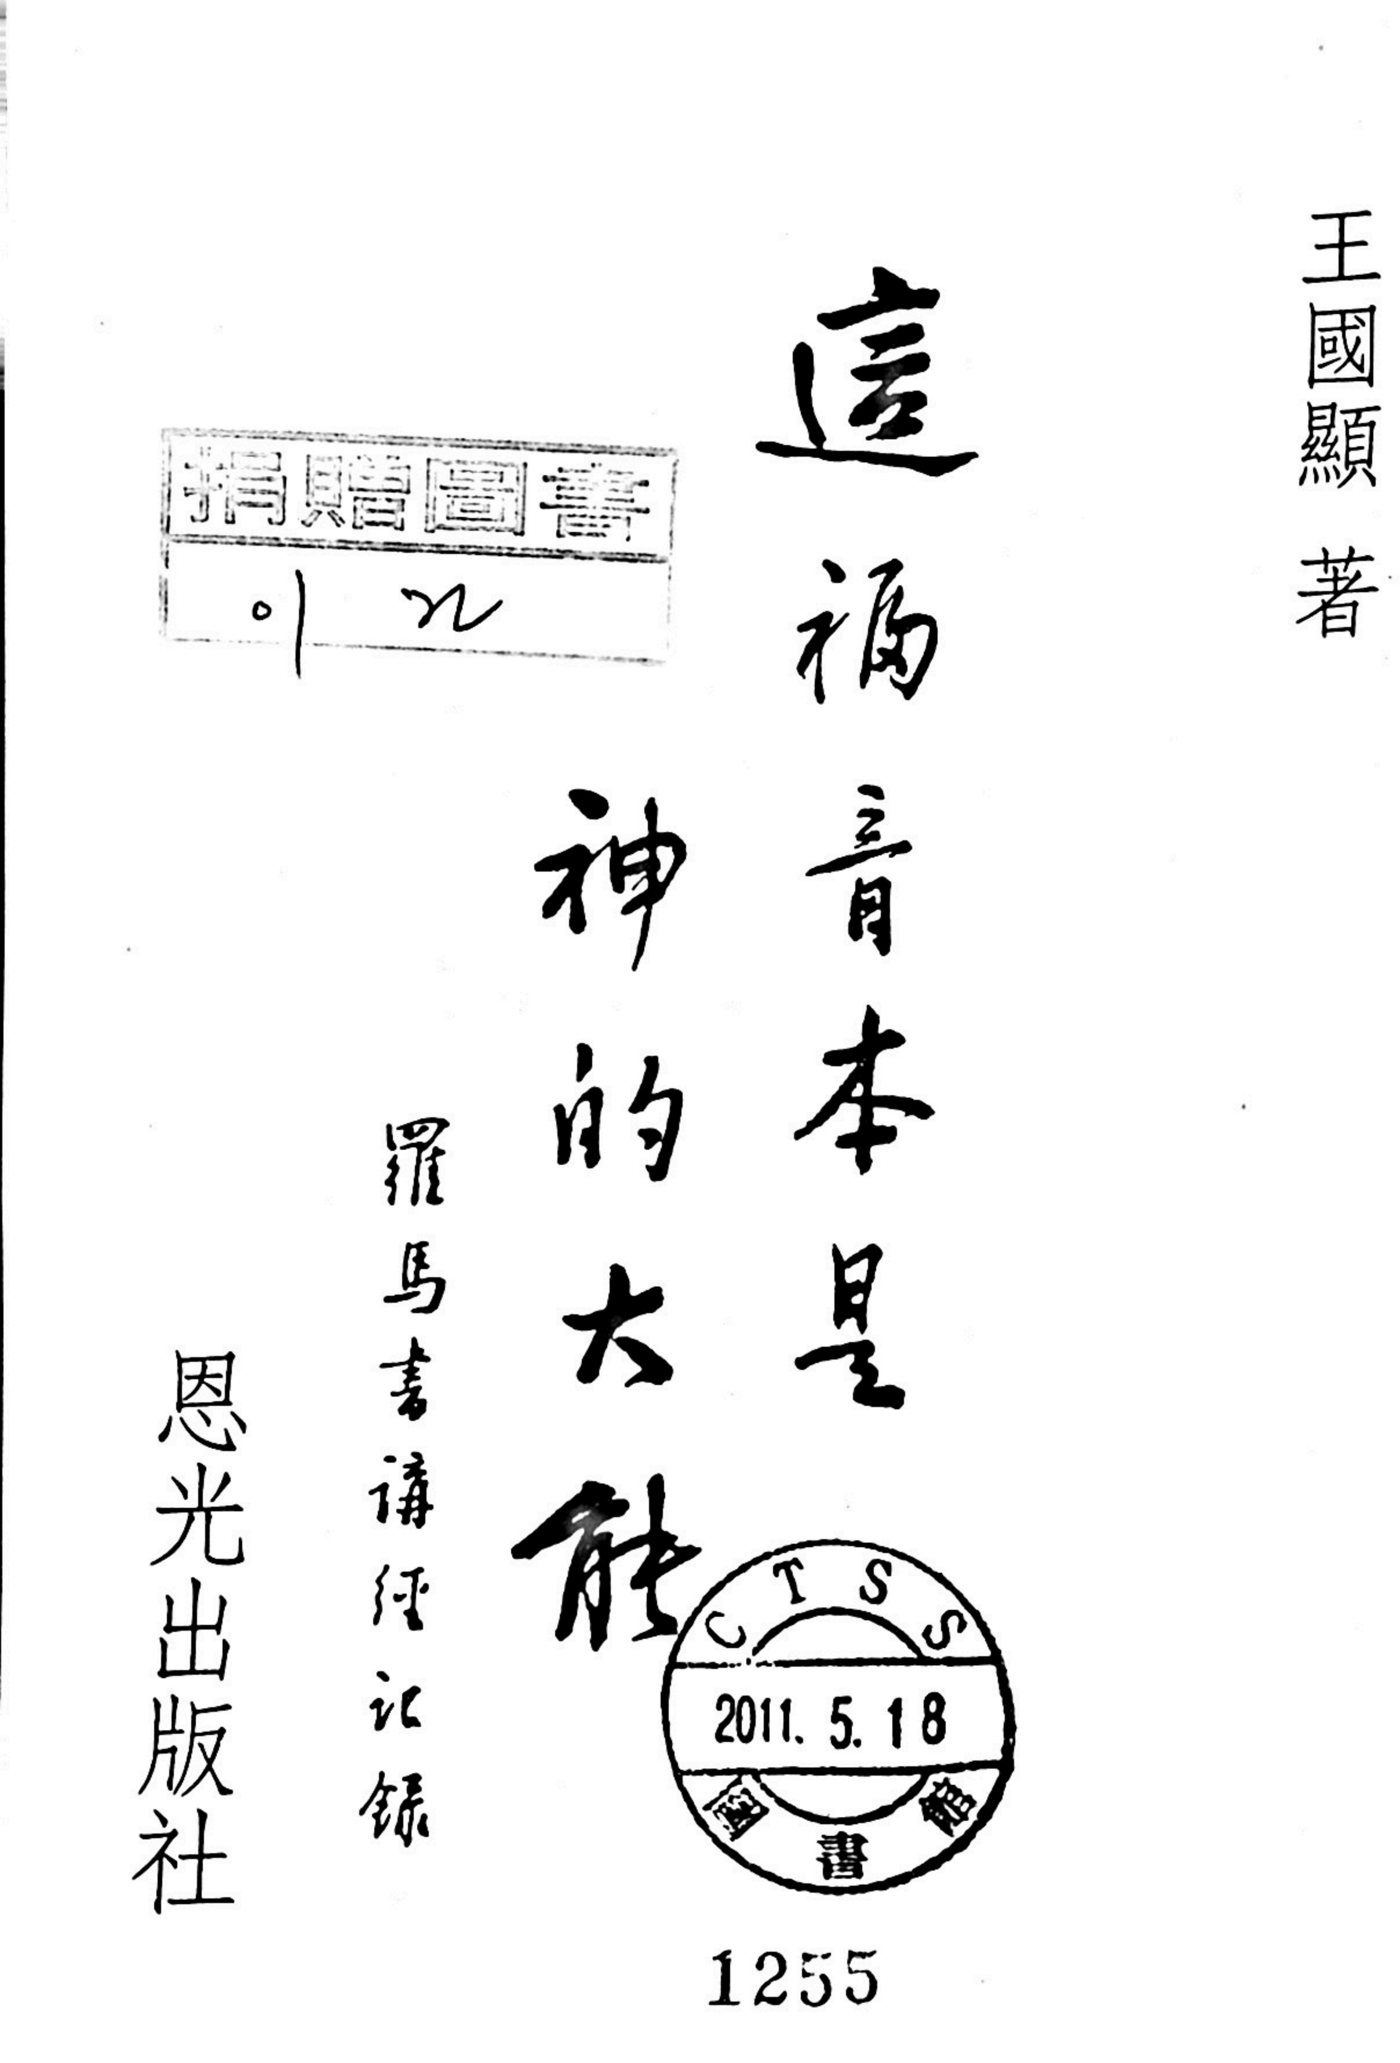 王國顯 著
這福音本是
神的大能
羅馬書講經記錄
恩光出版社
捐贈圖書
CTSS
2011. 5. 18
圖書館
1255